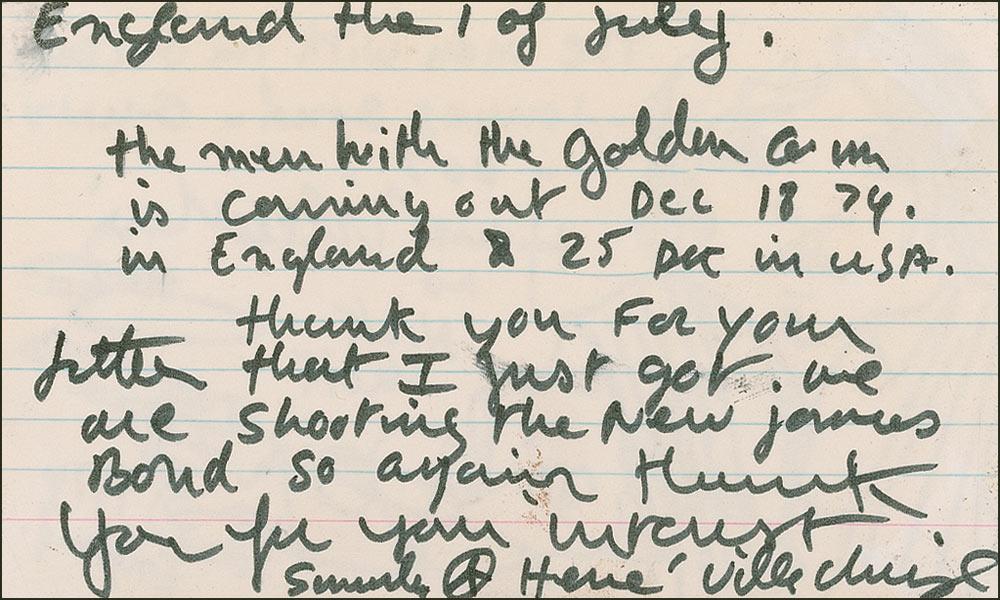 England the 1 of July.
the men with the golden Gun
is coming out Dec 18 74.
in England & 25 Dec in USA.
thank you For your
letter that I just got. we
are shooting the New james
Bond so again thank
You for your interest
Hervé Villechaize